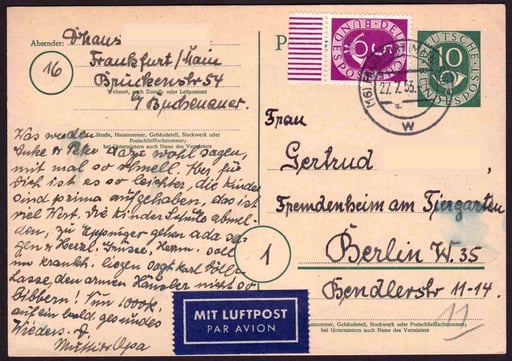 Absender:
Dhaus
Frankfurt/Main
Brückenstr 54
Wohnort, auch Zustell- oder Leitpostamt
b/ Buchenauer.
16
Straße, Hausnummer, Gebäudeteil, Stockwerk oder
Postschließfachnummer;
bei Untermietern auch Name des Vermieters
P
DEUTSCHE BUNDESPOST
5
DEUTSCHE BUNDESPOST
10
27.7.53
W
Was werden
Anke + Peko dazu wohl sagen,
mit mal so schnell. Aber für
Dich ist es so leichter, die Kinder
sind prima aufgehoben, das ist
viel Wert. Die Kinder Schule abmel-
den, zu gehen
Grüsse, Herm. soll
krank liegen sagt Karl
Lasse, den armen nicht so
bibbern! Nun 1000 K.
auf ein bald. gesundes
Wieders.
Mutti + Opa
Frau
Gertrud
Fremdenheim am Tiergarten
Berlin W. 35
1
Bendlerstr 11-14.
MIT LUFTPOST
PAR AVION
Straße, Hausnummer, Gebäudeteil, Stockwerk oder Postschließfachnummer;
bei Untermietern auch Name des Vermieters
11